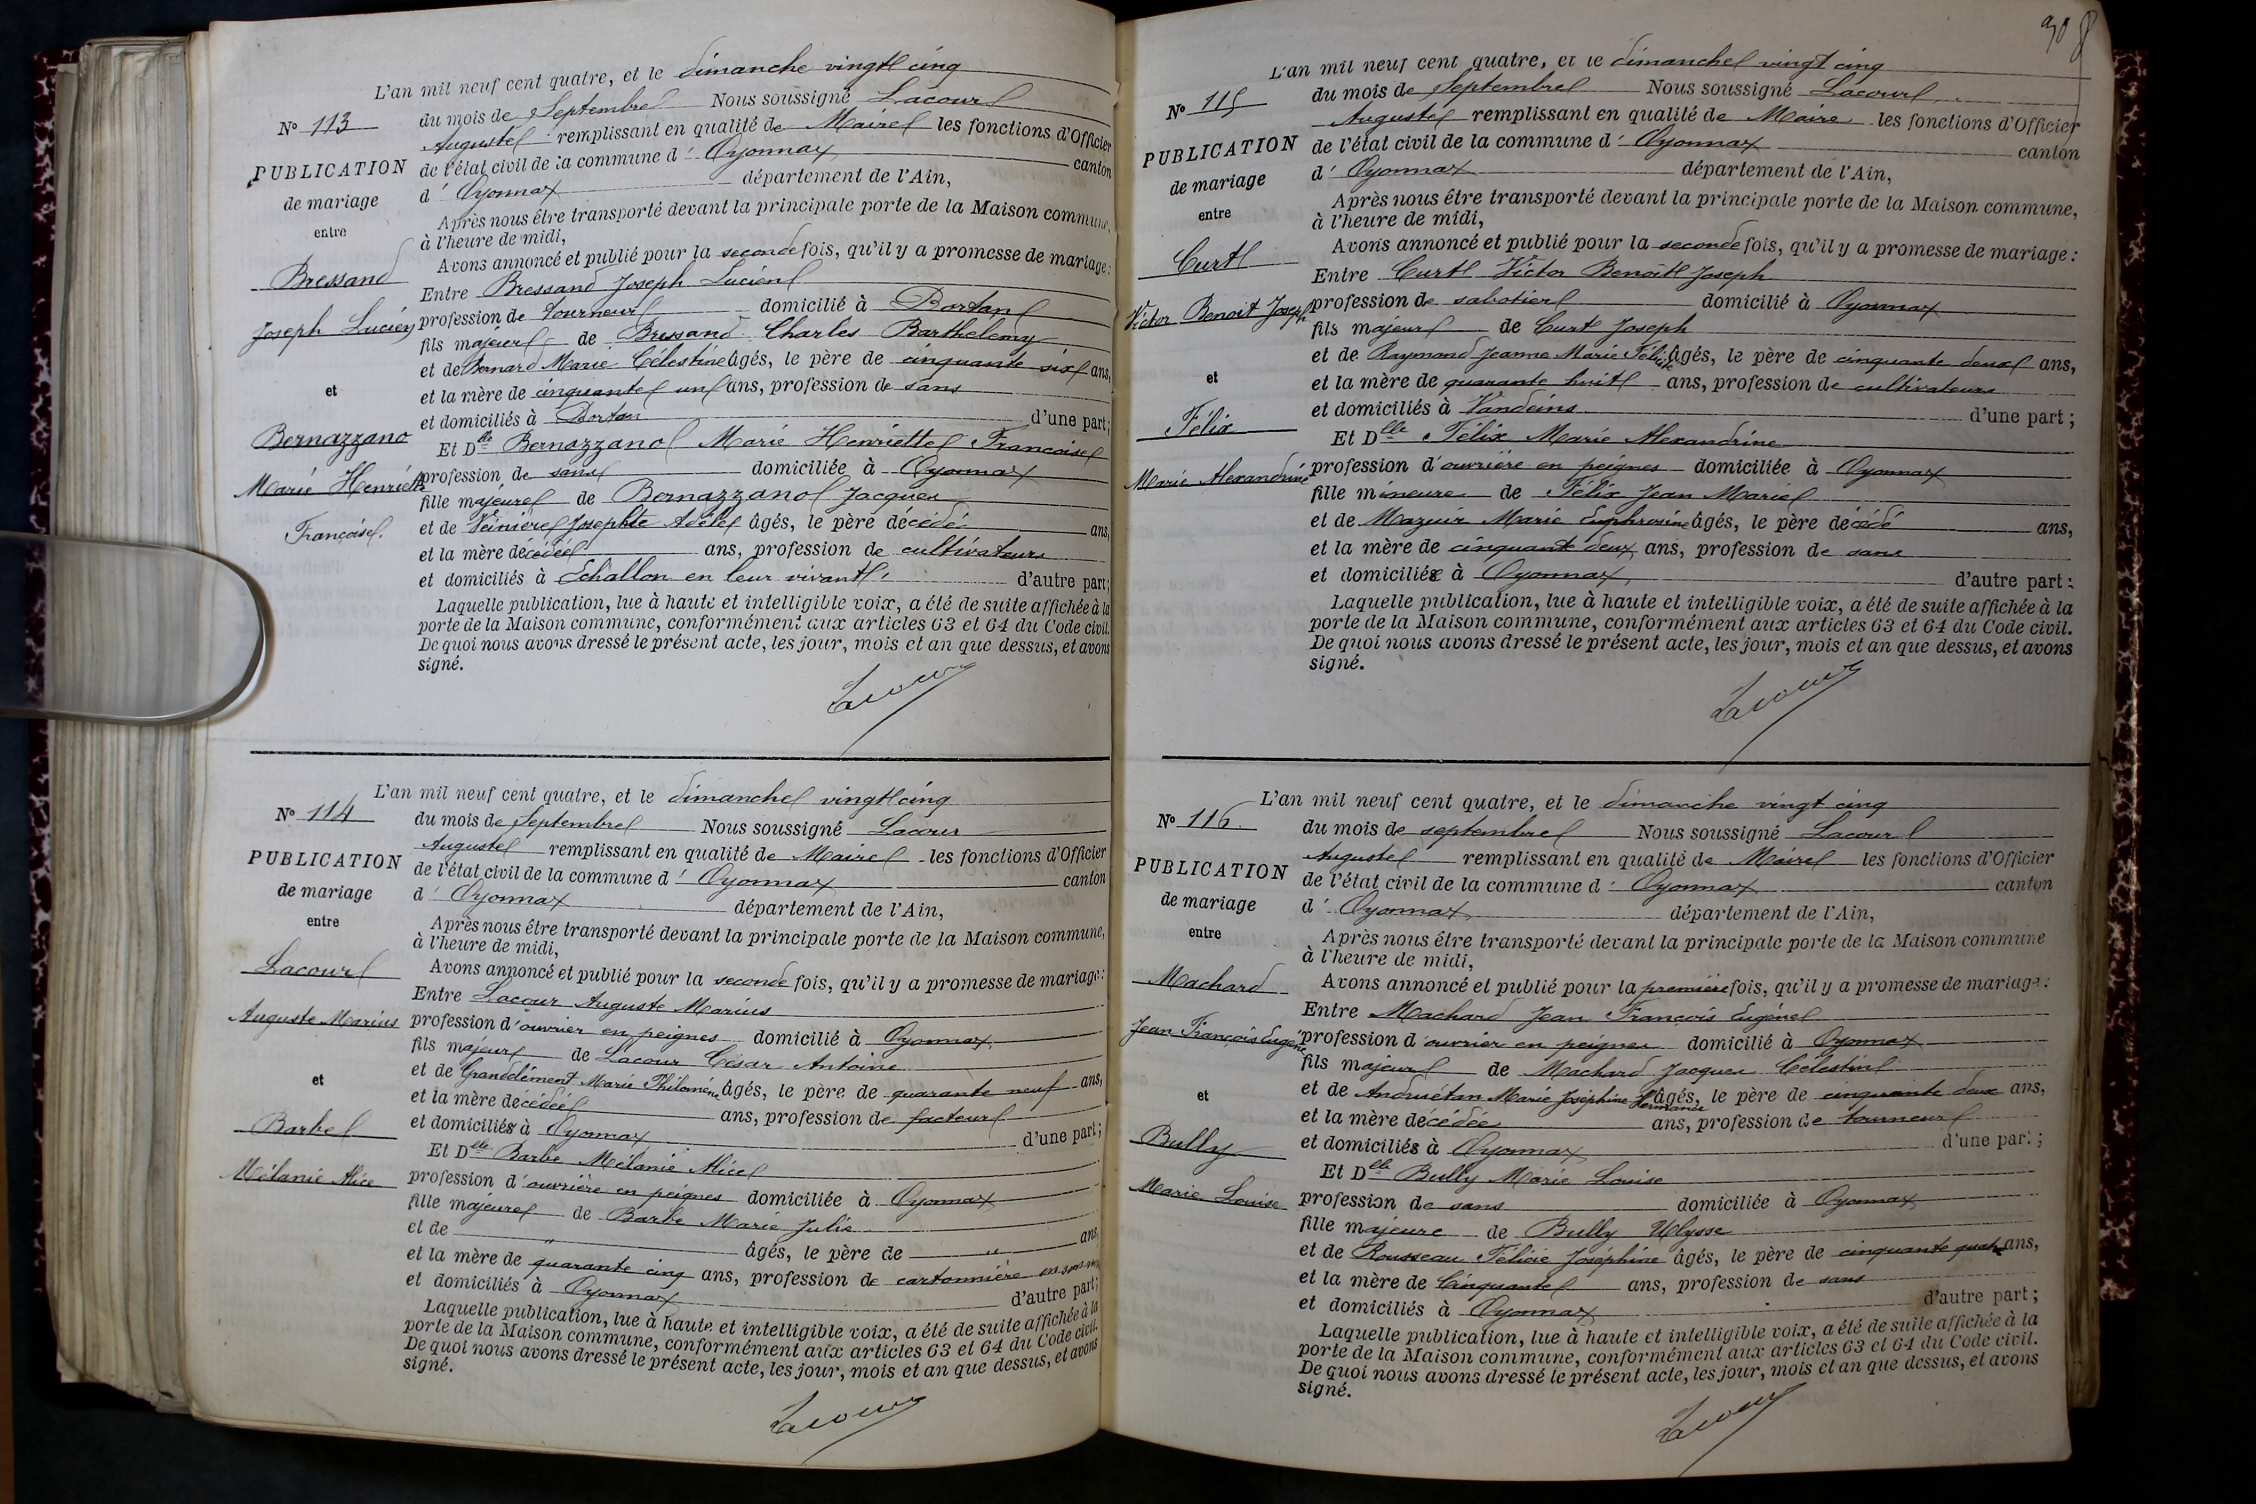 L'an mil neuf cent quatre, et le dimanche vingt cinq
du mois de Septembre Nous soussigné Lacour
Auguste remplissant en qualité de Maire les fonctions d'Officier
de l'état civil de la commune d' Oyonnax canton
d' Oyonnax département de l'Ain,
Après nous être transporté devant la principale porte de la Maison commune,
à l'heure de midi,
Avons annoncé et publié pour la seconde fois, qu'il y a promesse de mariage:
Entre Bressand Joseph Lucien
profession de tourneur domicilié à Dortan
fils majeur de Bressand Charles Barthelemy
et de Bernard Marie Célestine âgés, le père de cinquante six ans,
et la mère de cinquante un ans, profession de sans
et domiciliés à Dortan d'une part;
Et Dlle Bernazzano Marie Henriette Françoise
profession de sans domiciliée à Oyonnax
fille majeure de Bernazzano Jacques
et de Josephte Adèle âgés, le père décédé ans,
et la mère décédée ans, profession de cultivateurs
et domiciliés à Echallon en leur vivant d'autre part;
Laquelle publication, lue à haute et intelligible voix, a été de suite affichée à la
porte de la Maison commune, conformément aux articles 63 et 64 du Code civil.
De quoi nous avons dressé le présent acte, les jour, mois et an que dessus, et avons
signé.
Lacour
N° 113
PUBLICATION
de mariage
entre
Bressand
Joseph Lucien
et
Bernazzano
Marie Henriette
Françoise.
L'an mil neuf cent quatre, et le dimanche vingt cinq
du mois de Septembre Nous soussigné Lacour
Auguste remplissant en qualité de Maire les fonctions d'Officier
de l'état civil de la commune d' Oyonnax canton
d' Oyonnax département de l'Ain,
Après nous être transporté devant la principale porte de la Maison commune,
à l'heure de midi,
Avons annoncé et publié pour la seconde fois, qu'il y a promesse de mariage:
Entre Lacour Auguste Marius
profession d'ouvrier en peignes domicilié à Oyonnax
fils majeur de Lacour César Antoine
et de Grandclément Marie Philomène âgés, le père de quarante neuf ans,
et la mère décédée ans, profession de facteur
et domiciliés à Oyonnax d'une part;
Et Dlle Barbe Mélanie Alice
profession d'ouvrière en peignes domiciliée à Oyonnax
fille majeure de Barbe Marie Julie
et de " âgés, le père de " ans,
et la mère de quarante cinq ans, profession de cartonnière
et domiciliés à Oyonnax d'autre part;
Laquelle publication, lue à haute et intelligible voix, a été de suite affichée à la
porte de la Maison commune, conformément aux articles 63 et 64 du Code civil.
De quoi nous avons dressé le présent acte, les jour, mois et an que dessus, et avons
signé.
Lacour
N° 114
PUBLICATION
de mariage
entre
Lacour
Auguste Marius
et
Barbe
Mélanie Alice
L'an mil neuf cent quatre, et le dimanche vingt cinq
du mois de Septembre Nous soussigné Lacour
Auguste remplissant en qualité de Maire les fonctions d'Officier
de l'état civil de la commune d' Oyonnax canton
d' Oyonnax département de l'Ain,
Après nous être transporté devant la principale porte de la Maison commune,
à l'heure de midi,
Avons annoncé et publié pour la seconde fois, qu'il y a promesse de mariage:
Entre Curt Victor Benoît Joseph
profession de sabotier domicilié à Oyonnax
fils majeur de Curt Joseph
et de Raymond Jeanne Marie Félicité âgés, le père de cinquante deux ans,
et la mère de quarante huit ans, profession de cultivateurs
et domiciliés à Vandeins d'une part;
Et Dlle Félix Marie Alexandrine
profession d'ouvrière en peignes domiciliée à Oyonnax
fille mineure de Félix Jean Marie
et de Mazuir Marie Euphrosine âgés, le père décédé ans,
et la mère de cinquante deux ans, profession de sans
et domiciliée à Oyonnax d'autre part:
Laquelle publication, lue à haute et intelligible voix, a été de suite affichée à la
porte de la Maison commune, conformément aux articles 63 et 64 du Code civil.
De quoi nous avons dressé le présent acte, les jour, mois et an que dessus, et avons
signé.
Lacour
N° 115
PUBLICATION
de mariage
entre
Curt
Victor Benoit Joseph
et
Félix
Marie Alexandrine
L'an mil neuf cent quatre, et le dimanche vingt cinq
du mois de septembre Nous soussigné Lacour
Auguste remplissant en qualité de Maire les fonctions d'Officier
de l'état civil de la commune d' Oyonnax canton
d' Oyonnax département de l'Ain,
Après nous être transporté devant la principale porte de la Maison commune
à l'heure de midi,
Avons annoncé et publié pour la première fois, qu'il y a promesse de mariage:
Entre Machard Jean François Eugène
profession d'ouvrier en peignes domicilié à Oyonnax
fils majeur de Machard Jacques Célestin
et de Andruétan Marie Joséphine Hermance âgés, le père de cinquante deux ans,
et la mère décédée ans, profession de tourneur
et domiciliés à Oyonnax d'une part;
Et Dlle Bully Marie Louise
profession de sans domiciliée à Oyonnax
fille majeure de Bully Ulysse
et de Rousseau Félicie Joséphine âgés, le père de cinquante quatre ans,
et la mère de Cinquante ans, profession de sans
et domiciliés à Oyonnax d'autre part;
Laquelle publication, lue à haute et intelligible voix, a été de suite affichée à la
porte de la Maison commune, conformément aux articles 63 et 64 du Code civil.
De quoi nous avons dressé le présent acte, les jour, mois et an que dessus, et avons
signé.
Lacour
N° 116
PUBLICATION
de mariage
entre
Machard
Jean François Eugène
et
Bully
Marie Louise